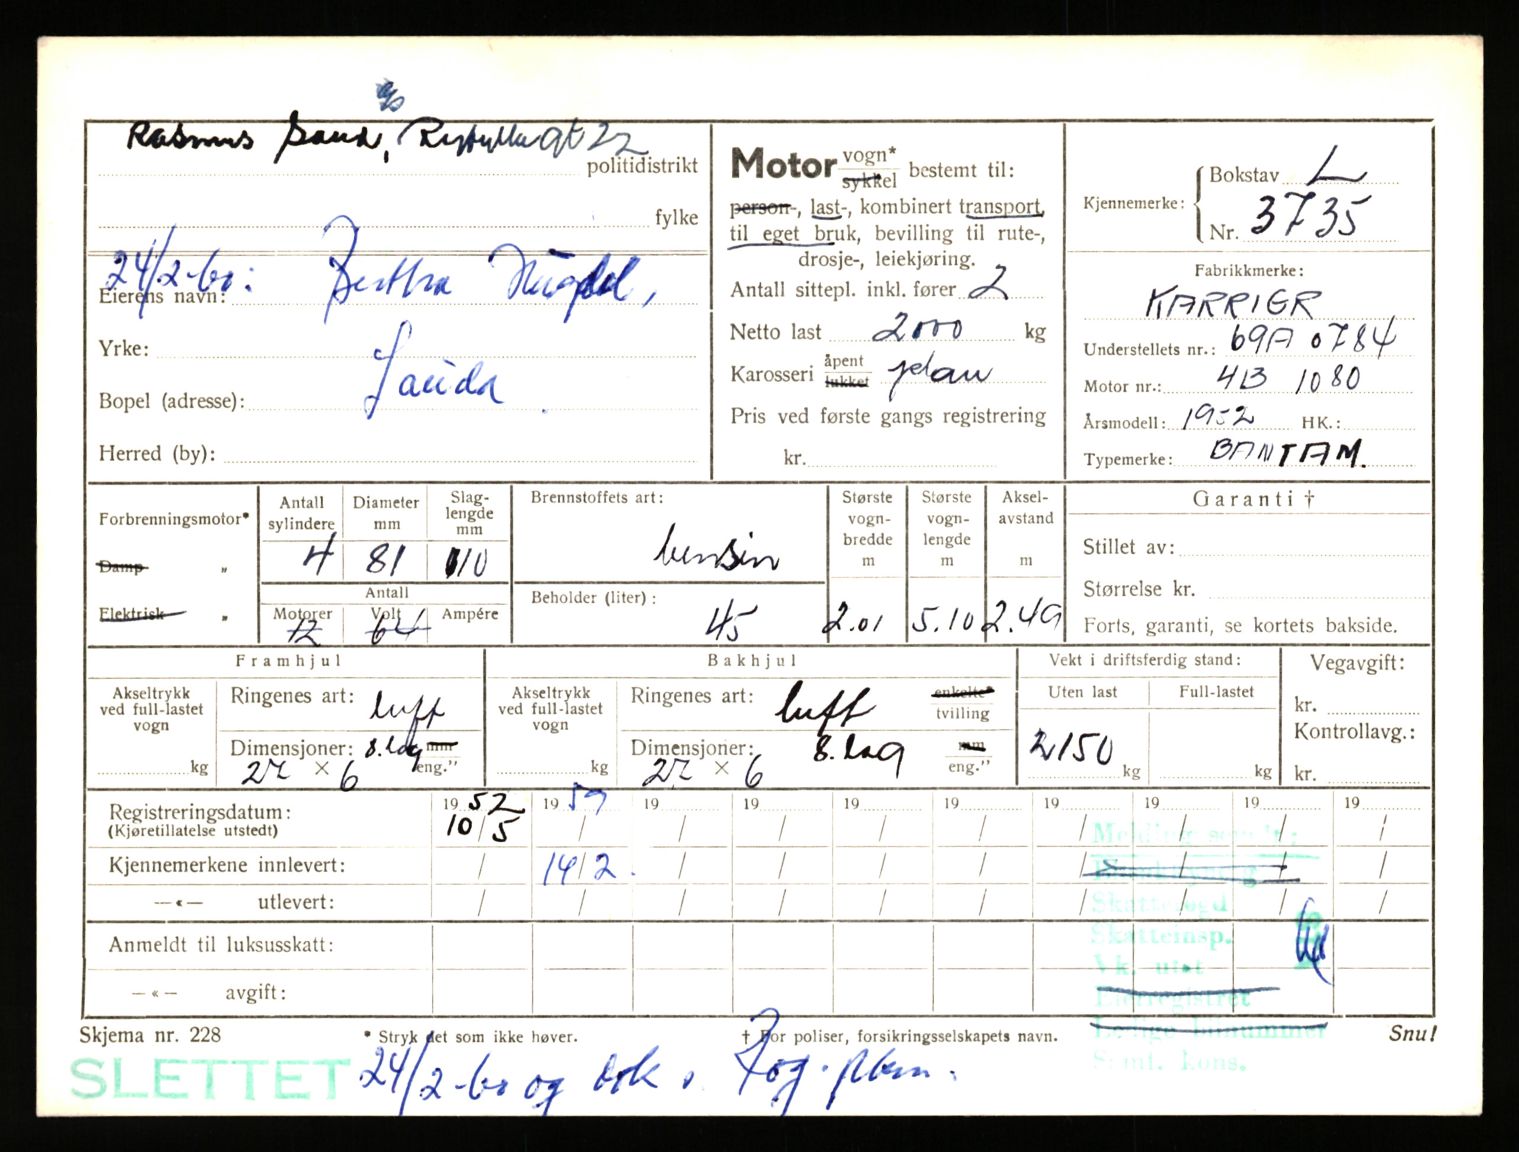 Rasmus Sand, gt 22
politidistrikt
fylke
24/2-60:
Eierens navn: Bertha
Yrke:
Bopel (adresse): Sauda
Herred (by):
Motor vogn* sykkel bestemt til:
person-, last-, kombinert transport,
til eget bruk, bevilling til rute-,
drosje-, leiekjøring.
Antall sittepl. inkl. fører 2
Netto last 2000 kg
Karosseri åpent lukket plan
Pris ved første gangs registrering
kr.
Kjennemerke: Bokstav L
Nr. 3735
Fabrikkmerke:
KARRIER
Understellets nr.: 69A 0784
Motor nr.: 4B 1080
Årsmodell: 1952 HK.:
Typemerke: BANTAM.
Forbrenningsmotor*
Damp "
Elektrisk "
Antall sylindere 4
Diameter mm 81
Slaglengde mm 110
Antall
Motorer 12
Volt 64
Ampére
Brennstoffets art:
bensin
Beholder (liter):
45
Største vogn-bredde m 2.01
Største vogn-lengde m 5.10
Aksel-avstand m 2.49
Garanti †
Stillet av:
Størrelse kr.
Forts, garanti, se kortets bakside.
Framhjul
Akseltrykk ved full-lastet vogn
kg
Ringenes art: luft
Dimensjoner: 8.lag mm
27 × 6 eng."
Bakhjul
Akseltrykk ved full-lastet vogn
kg
Ringenes art: luft enkelte* tvilling
Dimensjoner: 8.lag mm
27 × 6 eng."
Vekt i driftsferdig stand:
Uten last Full-lastet
2150 kg kg
Vegavgift:
kr.
Kontrollavg.:
kr.
Registreringsdatum: 19 52 19 59 19 19 19 19 19 19 19 19
(Kjøretillatelse utstedt) 10/5 / / / / / / / / /
Kjennemerkene innlevert: / 14/2 / / / / / / / /
—«— utlevert: / / / / / / / / / /
Anmeldt til luksusskatt:
—«— avgift:
Melding sendt:
Skattefogd
Skatteinsp.
Vk. utst
Eierregistret
Ledige bilnummer
Saml. kons.
Skjema nr. 228
* Stryk det som ikke høver.
† For poliser, forsikringsselskapets navn.
Snu!
SLETTET
24/2-60 og